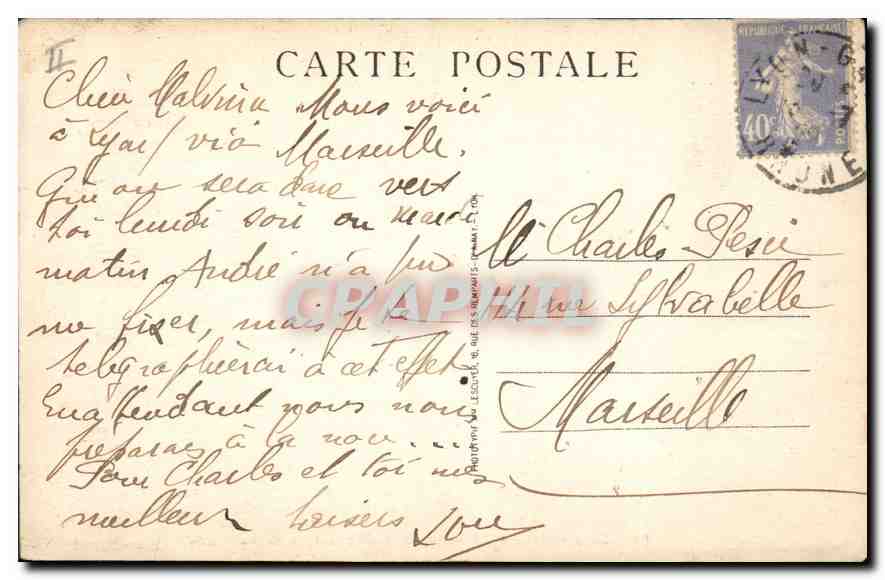 II
CARTE POSTALE
REPUBLIQUE FRANÇAISE
40c
POSTES
LYON-G
RHONE
Chère Malvina Nous voici
à Lyon / via
Marseille.
on sera vers
toi lundi soir ou Mardi
matin André n'a pu
me fixer, mais je te
télégraphierai à cet effet
En attendant nous nous
préparons à la nou...
Pour Charles et toi nos
meilleurs baisers Lou
PHOTOTYPIE LESCUYER, 16, RUE DES REMPARTS-D'AINAY - LYON
CPAPHIL
Charles Pesie
44 rue Sylvabelle
Marseille